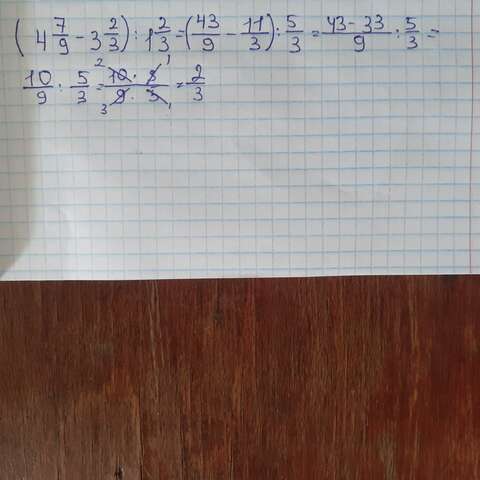 (4 7/9 - 3 2/3) : 1 2/3 = (43/9 - 11/3) : 5/3 = 43-33/9 : 5/3 =
10/9 : 5/3 = 2 10 · 3 1 / 3 9 · 5 1 = 2/3